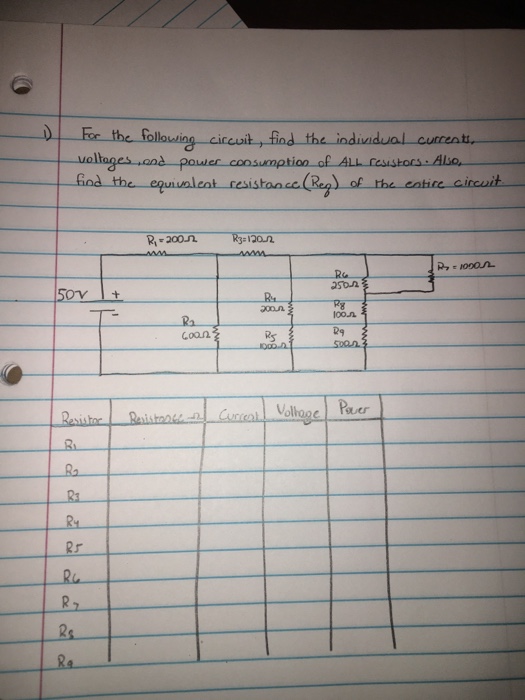 1) For the following circuit, find the individual currents,
voltages, and power consumption of ALL resistors. Also,
find the equivalent resistance (Req) of the entire circuit
R1=200Ω R3=120Ω
R7=1000Ω
R6
250Ω
50V +
-
R4
200Ω
R8
100Ω
R2
600Ω
R5
1000Ω
R9
500Ω
Resistor Resistance Ω Current Voltage Power
R1
R2
R3
R4
R5
R6
R7
R8
R9